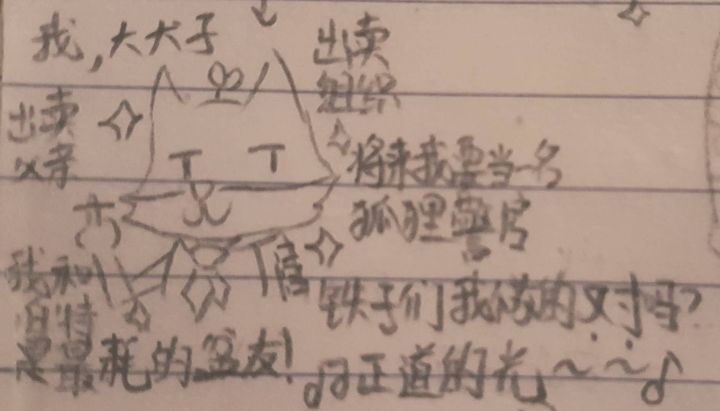 我,大犬子
出卖
组织
出卖
父亲
将来我要当一名
狐狸警官
我和
是最耗的盆友!
铁子们我做的对吗?
♫正道的光~~♪